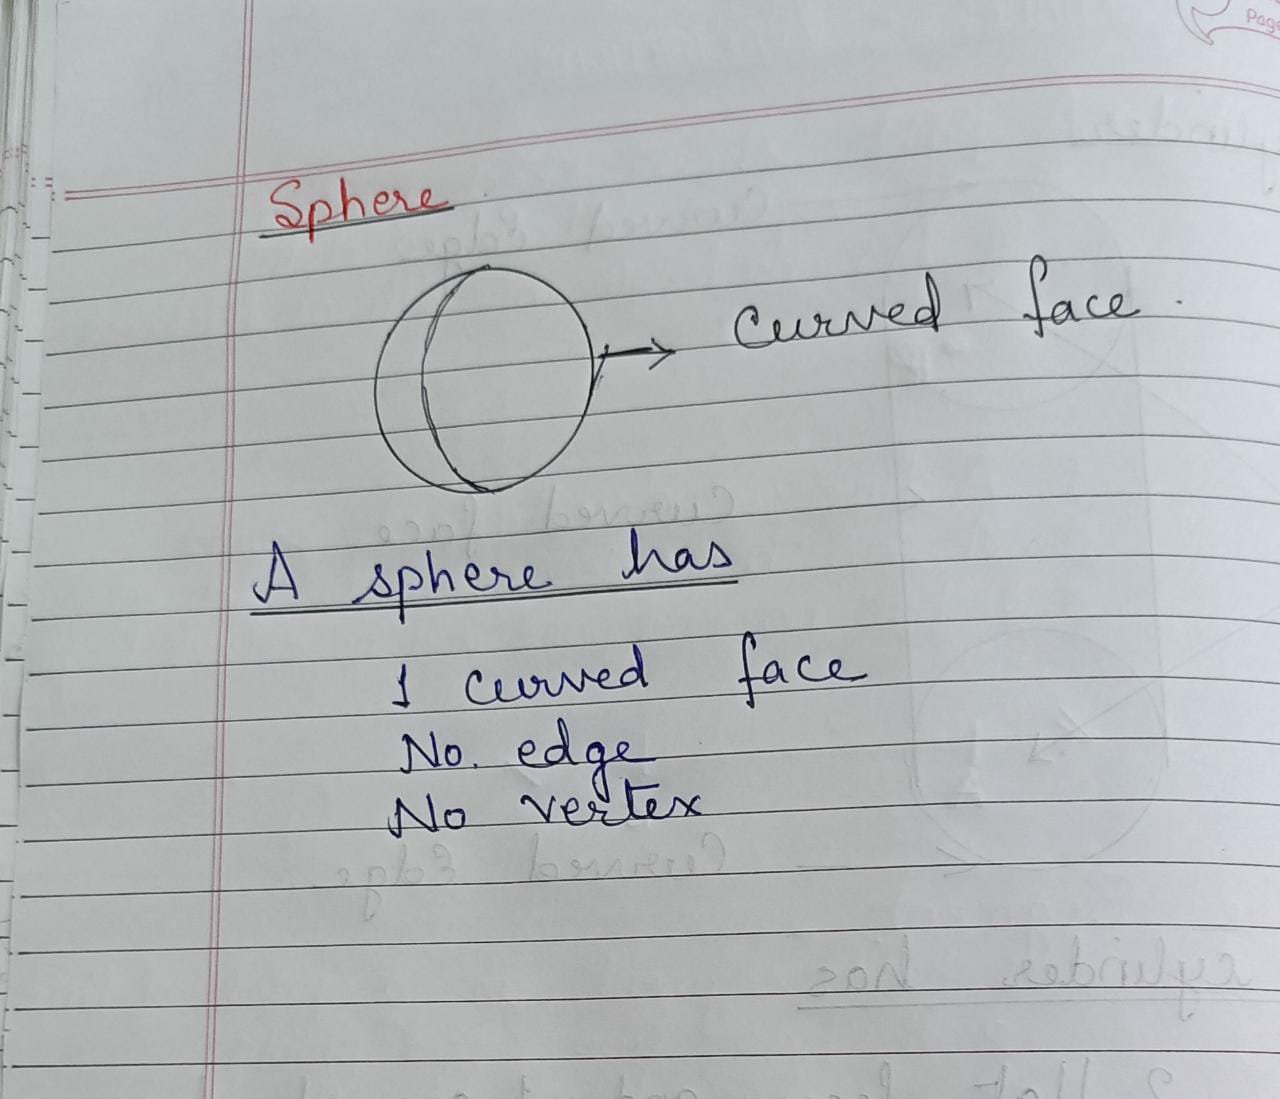 Page
Sphere
curved face.
A sphere has
1 curved face
No. edge
No vertex